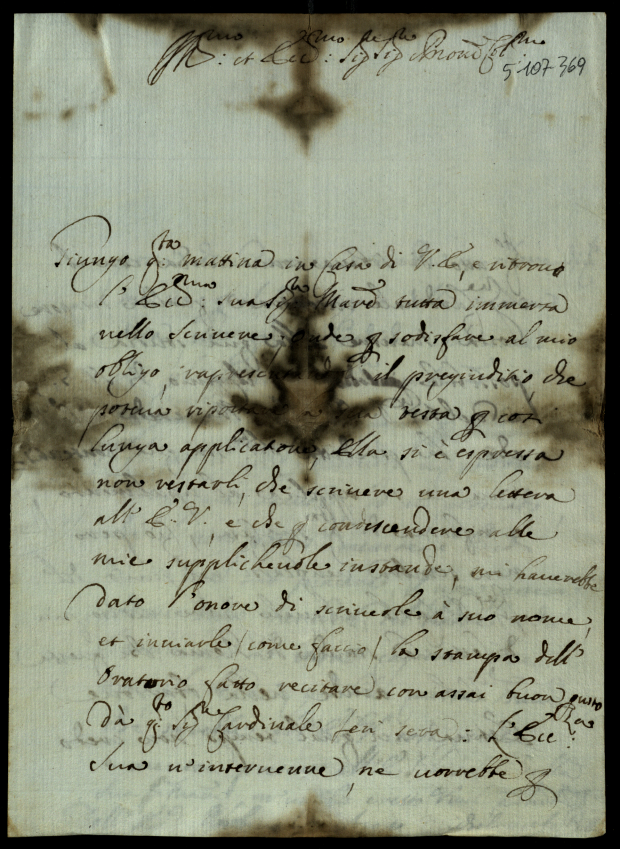 Ill:mo et Ecc:mo Sig:re Sig:re Pron Col:mo
5-107-369
Giungo q:ta mattina in Casa di V.E. e ritrovo
l'Ecc:ma sua Sig:ra Mad tutta immersa
nello scrivere, onde p sodisfare al mio
obligo, rapresen il pregiuditio, che
poteva riporta a testa p così
lunga applicatione, Ella si è espressa
non restarli, che scrivere una lettera
all'E.V., e che p condiscendere alle
mie supplichevole instanze, mi haverebbe
dato l'onore di scriverle à suo nome,
et inviarle (come faccio) la stampa dell'
Oratorio fatto recitare con assai buon gusto
dà q:to Sig:re Cardinale ieri sera: L'Ecc:za
Sua v'intervenne, ne vorrebbe p